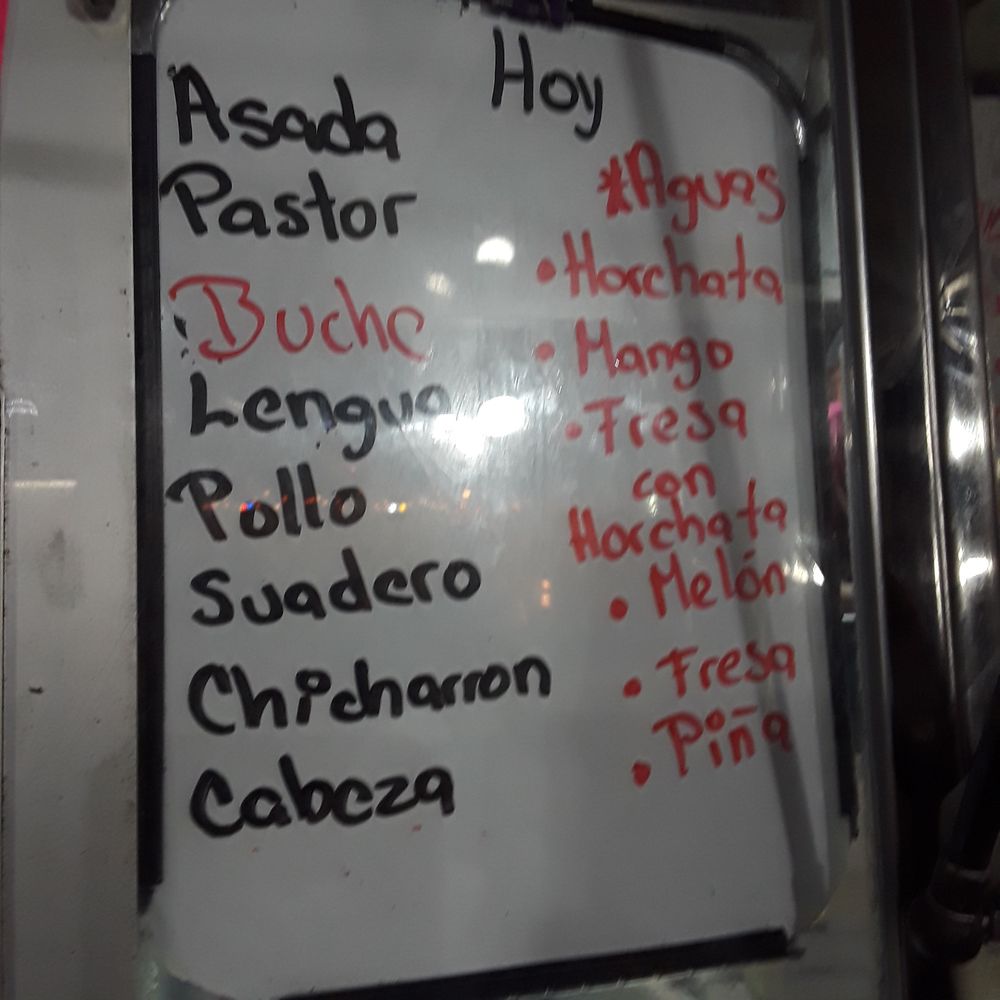 Hoy
Asada
Pastor
Buche
Lengua
Pollo
Suadero
Chicharron
Cabeza
*Aguas
• Horchata
• Mango
• Fresa
con
Horchata
• Melón
• Fresa
• Piña